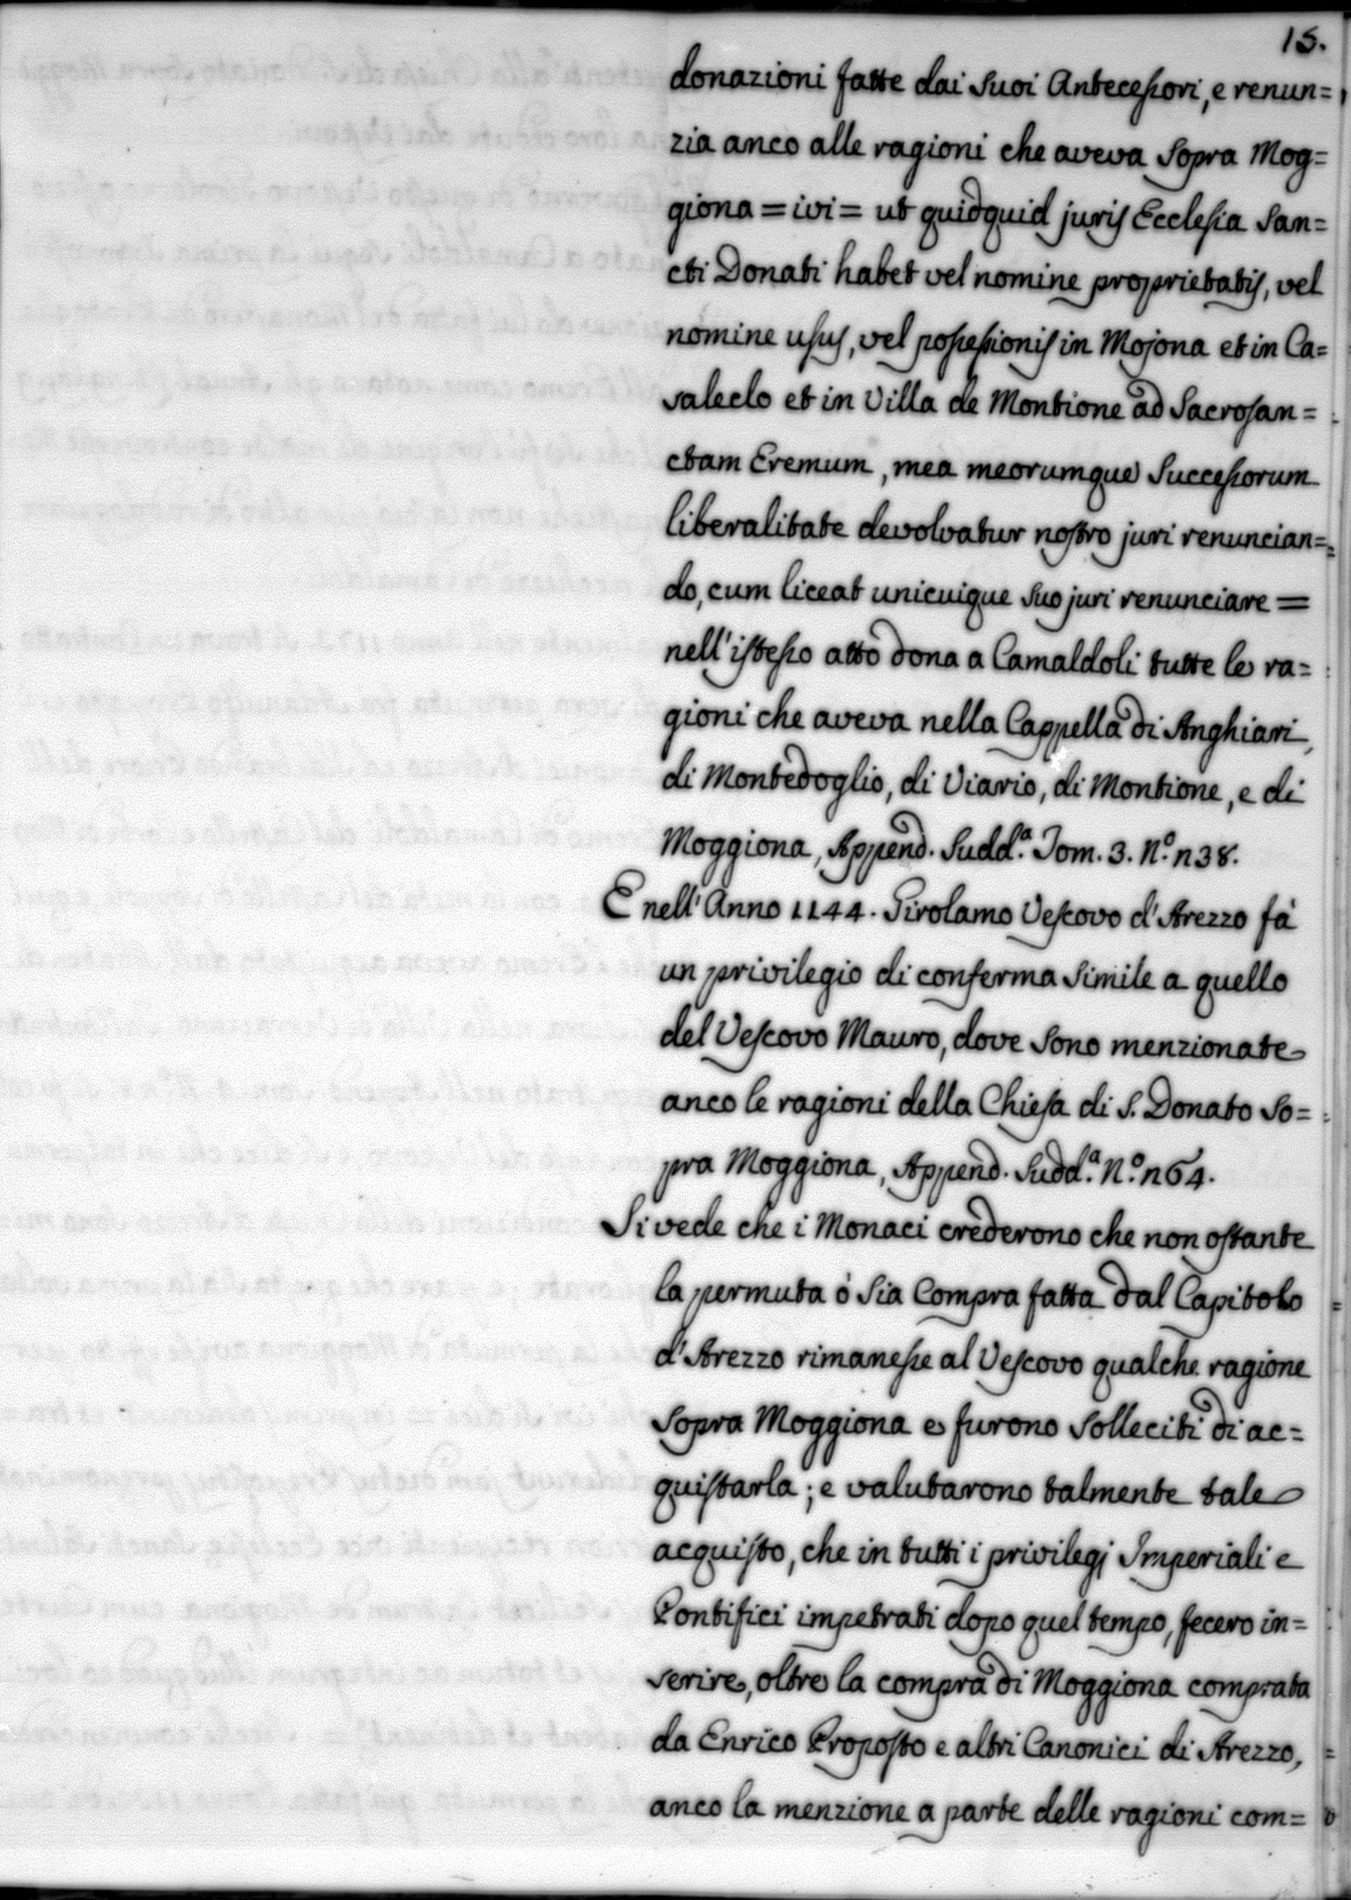 15.
donazioni fatte dai suoi Antecessori, e renun=
zia anco alle ragioni che aveva sopra Mog=
giona = ivi = ut quidquid juris Ecclesia San=
cti Donati habet vel nomine proprietatis, vel
nomine usus, vel possessionis in Mojona et in Ca=
saleclo et in Villa de Montione ad Sacrosan=
ctam Eremum, mea meorumque Successorum
liberalitate devolvatur nostro juri renuncian=
do, cum liceat unicuique suo juri renunciare =
nell'istesso atto dona a Camaldoli tutte le ra=
gioni che aveva nella Cappella di Anghiari,
di Montedoglio, di Viario, di Montione, e di
Moggiona, Append. Sudd.ª Tom. 3. N.º n38.
E nell'Anno 1144. Girolamo Vescovo d'Arezzo fà
un privilegio di conferma simile a quello
del Vescovo Mauro, dove sono menzionate
anco le ragioni della Chiesa di S. Donato so=
pra Moggiona, Append. Sudd.ª N.º n64.
Si vede che i Monaci crederono che non ostante
la permuta ò sia compra fatta dal Capitolo
d'Arezzo rimanesse al Vescovo qualche ragione
sopra Moggiona e furono solleciti di ac=
quistarla; e valutarono talmente tale
acquisto, che in tutti i privilegj Imperiali e
Pontifici impetrati dopo quel tempo, fecero in=
serire, oltre la compra di Moggiona comprata
da Enrico Proposto e altri Canonici di Arezzo,
anco la menzione a parte delle ragioni com=